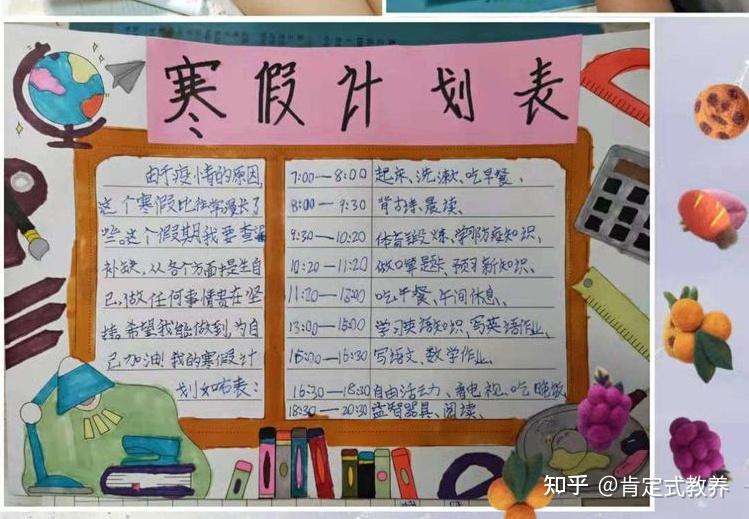 寒假计划表
由于疫情的原因,
这个寒假比往常漫长了
些。这个假期我要查漏
补缺,从各个方面提生自
己,做任何事情贵在坚
持,希望我能做到,为自
己加油!我的寒假计
划如下表:
7:00—8:00 起床、洗漱、吃早餐、
8:00—9:30 背古诗、晨读、
9:30—10:20 体育锻炼、学习防疫知识、
10:20—11:20 做口算题卡、预习新知识、
11:20— 吃午餐、午间休息、
13:00—15:00 学习英语知识、写英语作业、
—16:30 写语文、数学作业、
16:30—18:30 自由活动、看电视、吃晚饭
18:30—20:30 益智器具、阅读、
知乎 @肯定式教养